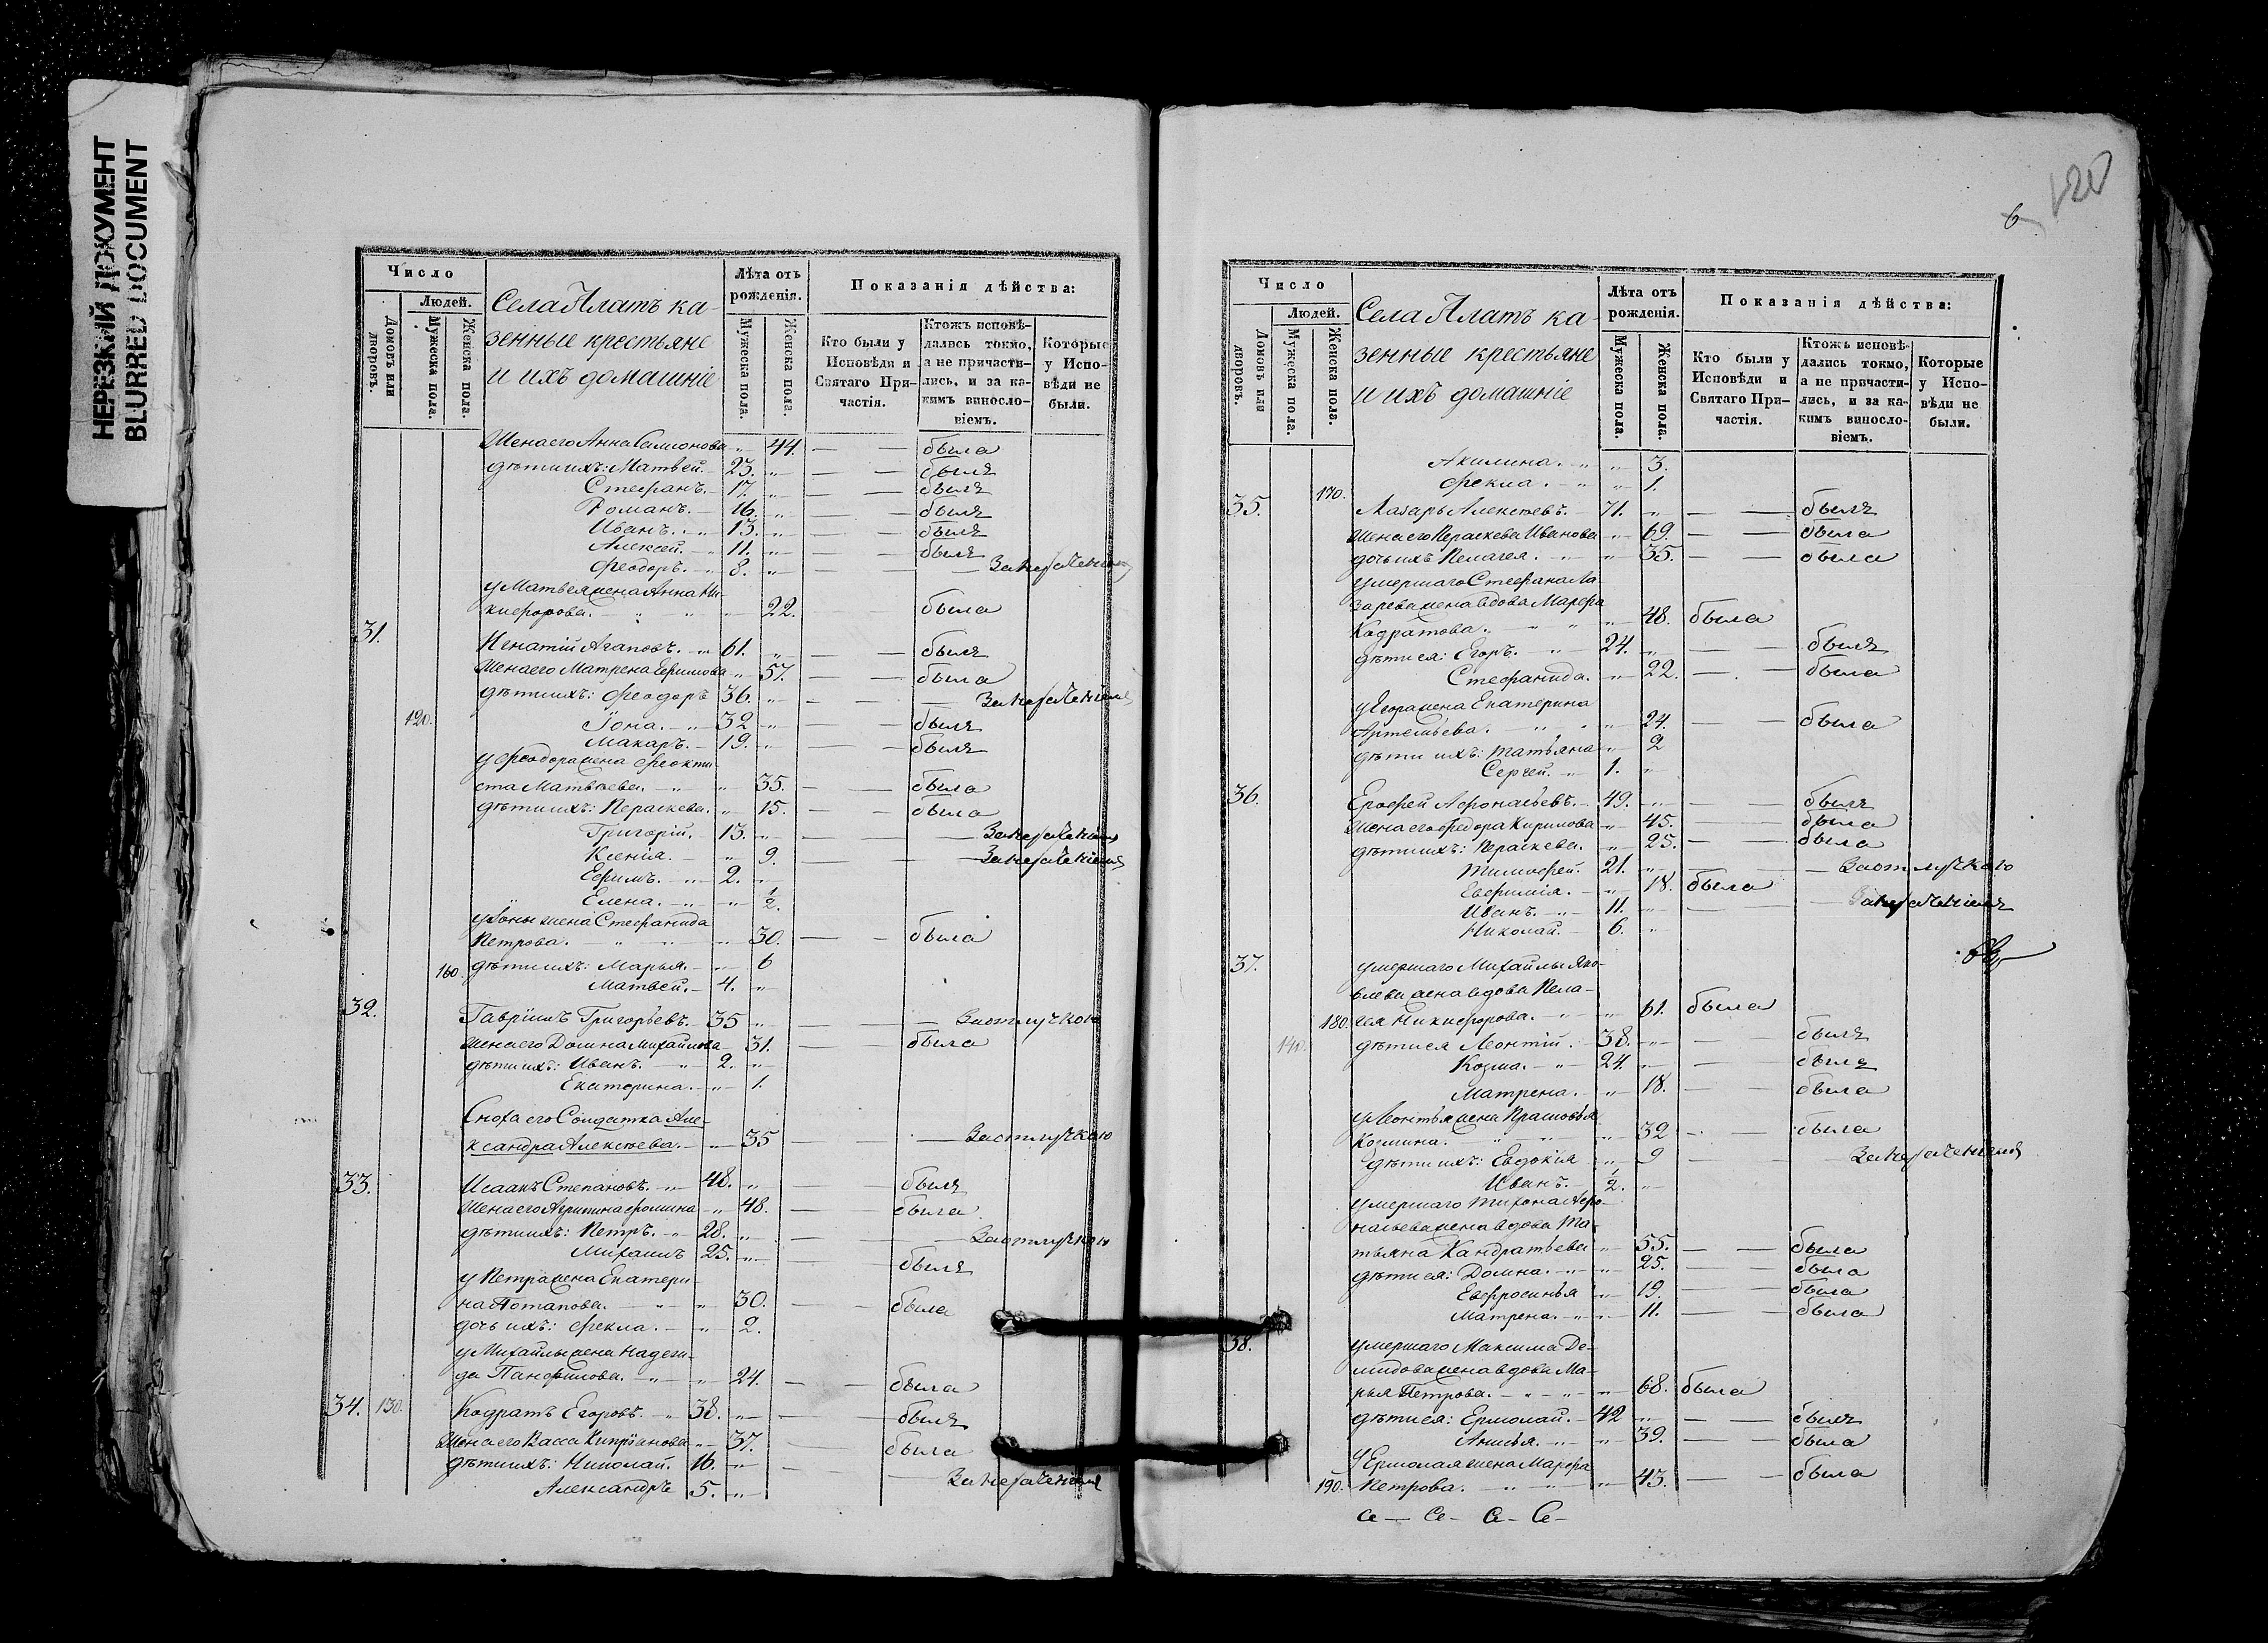 НЕРЕЗКИЙ ДОКУМЕНТ
BLURRED DOCUMENT
Число
Людей.
Домовъ или дворовъ.
Мужеска пола.
Женска пола.
Села Алатъ ка-
зенные крестьяне
и ихъ домашніе
Лѣта отъ рожденія.
Мужеска пола.
Женска пола.
Показанія дѣйства:
Кто были у Исповѣди и Святаго Причастія.
Ктожъ исповѣ-
дались токмо,
а не причасти-
лись, и за ка-
кимъ винослο-
віемъ.
Которые
у Испо-
вѣди не
были.
Жена его Анна Самсонова „ 44. — — была
дѣти ихъ: Матвей. 23. „ — — былъ
Стефанъ. 17. „ — — былъ
Романъ. 16. „ — — былъ
Иванъ. 13. „ — — былъ
Алексей. 11. „ — — былъ
Феодоръ. 8. „ — — — За нераченіемъ
у Матвея жена Анна Ни-
кифорова. „ 22. была
31. Игнатій Агаповъ. 61. „ — — былъ
Жена его Матрена Ефимова „ 57. — — была
дѣти ихъ: Феодоръ 36. „ — — За нераченіемъ
120. Іона. 32 „ — — былъ
Макаръ. 19. „ — — былъ
у Феодора жена Феокти-
ста Матвеева. „ 35. — — была
дѣти ихъ: Параскева. „ 15. — — была
Григорій. 13. „ — — За нераченіемъ
Ксенія. „ 9. — — За нераченіемъ
Ефимъ. 2. „
Елена. „ 1/2.
у Іоны жена Стефанида
Петрова. „ 30. — — была
160. дѣти ихъ: Марья. „ 6
Матвей. 4. „
32. Гавріилъ Григорьевъ. 35 „ — — За отлучкою
Жена его Домна Михайлова „ 31. — — была
дѣти ихъ: Иванъ. 2. „
Екатерина. „ 1.
Сноха его Солдатка Але-
ксандра Алексеева. „ 35 — — За отлучкою
33. Исаакъ Степановъ. 48. „ — былъ
Жена его Агрипина Фомина „ 48. — — была
дѣти ихъ: Петръ. 28. „ — — За отлучкою
Михаилъ 25. „ — — былъ
у Петра жена Екатери-
на Потапова. „ 30. — — была
дочь ихъ: Фекла. „ 2.
у Михайлы жена Надеж-
да Панфилова. „ 24. — — была
34. 130. Кодратъ Егоровъ. 38. „ — — былъ
Жена его Васса Кипріанова „ 37. — — была
дѣти ихъ: Николай. 16. „ — — За нераченіемъ
Александръ 5. „
6
120
Число
Людей.
Домовъ или дворовъ.
Мужеска пола.
Женска пола.
Села Алатъ ка-
зенные крестьяне
и ихъ домашніе
Лѣта отъ рожденія.
Мужеска пола.
Женска пола.
Показанія дѣйства:
Кто были у Исповѣди и Святаго Причастія.
Ктожъ исповѣ-
дались токмо,
а не причасти-
лись, и за ка-
кимъ винослο-
віемъ.
Которые
у Испо-
вѣди не
были.
Акилина. „ 3.
170. Фекла. „ 1.
35. Лазарь Алексеевъ. 71. „ — — былъ
Жена его Параскева Иванова „ 69. — — была
дочь ихъ Пелагея. „ 35. — — была
умершаго Стефана Ла-
зарева жена вдова Марфа
Кодратова. „ 48. была
дѣти ея: Егоръ. 24. „ — — былъ
Стефанида. „ 22. — — была
у Егора жена Екатерина
Артемьева. „ 24. — — была
дѣти ихъ: Татьяна „ 2
Сергей. 1. „
36. Ерофей Афонасьевъ. 49. „ — — былъ
Жена его Федора Кирилова „ 45. — — была
дѣти ихъ: Параскева. „ 25. — — была
Тимофей. 21. „ — — За отлучкою
Евфимія. „ 18. была
Иванъ. 11. „ — — За нераченіемъ
Николай. 6. „
37. умершаго Михайлы Яко-
влева жена вдова Пела-
180. гея Никифорова. „ 61. была
140. дѣти ея Леонтій. 38. „ былъ
Козма. 24. „ — былъ
Матрена. „ 18. — — была
у Леонтья жена Прасковья
Козмина. „ 32 — — была
дѣти ихъ: Евдокія „ 9 — — За нераченіемъ
Иванъ. 1/2. „
умершаго Тихона Афо-
насьева жена вдова Та-
тьяна Кандратьева „ 55. — — была
дѣти ея: Домна. „ 25. — — была
Евфросинья „ 19. — — была
Матрена. „ 11. — — была
38. умершаго Максима Де-
мидова жена вдова Ма-
рья Петрова. „ 68. была
дѣти ея: Ермолай. 42 „ — — былъ
Анисья. „ 39. — — была
У Ермолая жена Марфа
190. Петрова. „ 43. — — была